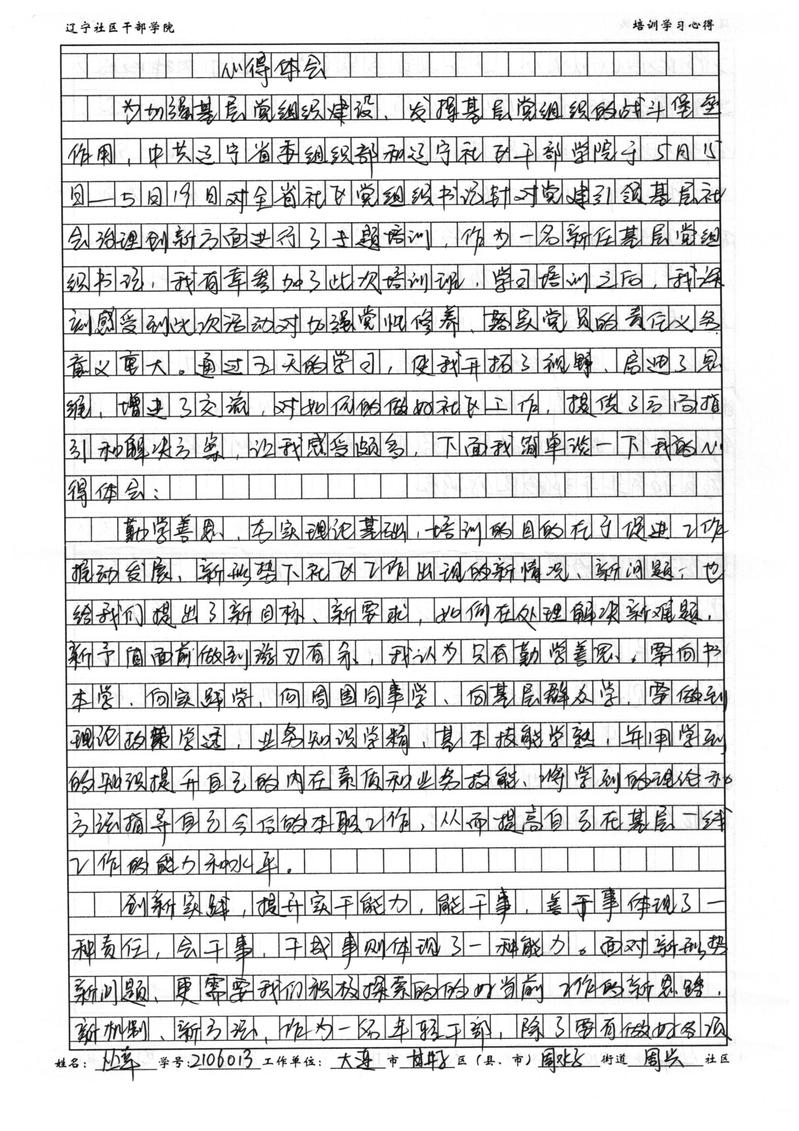 辽宁社区干部学院 培训学习心得
心得体会
为加强基层党组织建设、发挥基层党组织的战斗堡垒
作用，中共辽宁省委组织部和辽宁社区干部学院于5月15
日—5月19日对全省社区党组织书记针对党建引领基层社
会治理创新方面进行了专题培训，作为一名新任基层党组
织书记，我有幸参加了此次培训班，学习培训之后，我深
刻感受到此次活动对加强党性修养、落实党员的责任义务
意义重大。通过五天的学习，使我开拓了视野、启迪了思
维，增进了交流，对如何的做好社区工作，提供了方向指
引和解决方案，让我感受颇多，下面我简单谈一下我的心
得体会：
勤学善思、夯实理论基础，培训的目的在于促进工作
推动发展、新形势下社区工作出现的新情况、新问题；也
给我们提出了新目标、新要求，如何在处理解决新难题，
新矛盾面前做到游刃有余，我认为只有勤学善思。要向书
本学、向实践学、向周围同事学、向基层群众学，要做到
理论政策学透，业务知识学精，基本技能学熟，并用学到
的知识提升自己的内在素质和业务技能、将学到的理论和
方法指导自己今后的本职工作，从而提高自己在基层一线
工作的能力和水平。
创新实践，提升实干能力，能干事，善于事体现了一
种责任，会干事，干成事则体现了一种能力。面对新形势
新问题、更需要我们积极探索的的好当前工作的新思路，
新机制、新方法，作为一名年轻干部，除了要有做好各项
姓名： 学号：2106013 工作单位：大连 市 甘井子 区（县、市）周水子 街道 周兴 社区